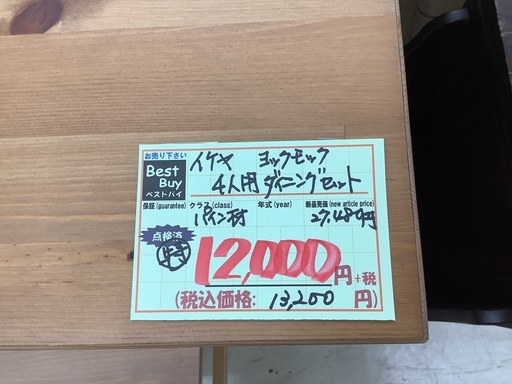 お売り下さい
Best Buy
ベストバイ
イケヤ ヨックモック
4人用ダイニングセット
保証(guarantee) クラス(class) 年式(year) 新品売価(new article price)
パイン材 27,480円
点検済
12,000円+税
(税込価格: 13,200円)